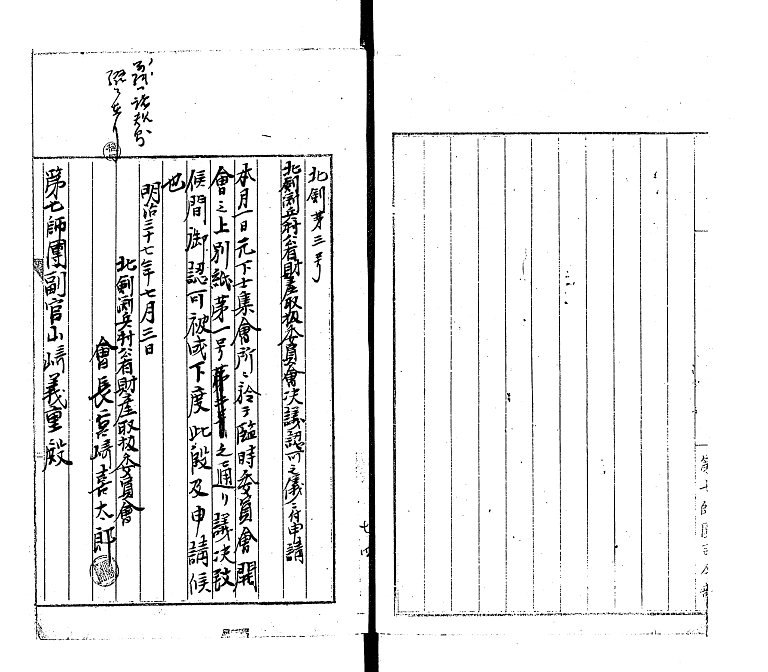 北劍第三号
北劍淵兵村公有財産取扱委員会決議認可之儀ニ付申請
本月一日元下士集會所ニ於テ臨時委員會開
會之上別紙第一号之通リ議決致
候間御認可被成下度此段及申請候
也
明治三十七年七月三日
北劍淵兵村公有財産取扱委員會
會長宮崎喜太郎
第七師團副官山崎義重殿
七四
第七師團司令部